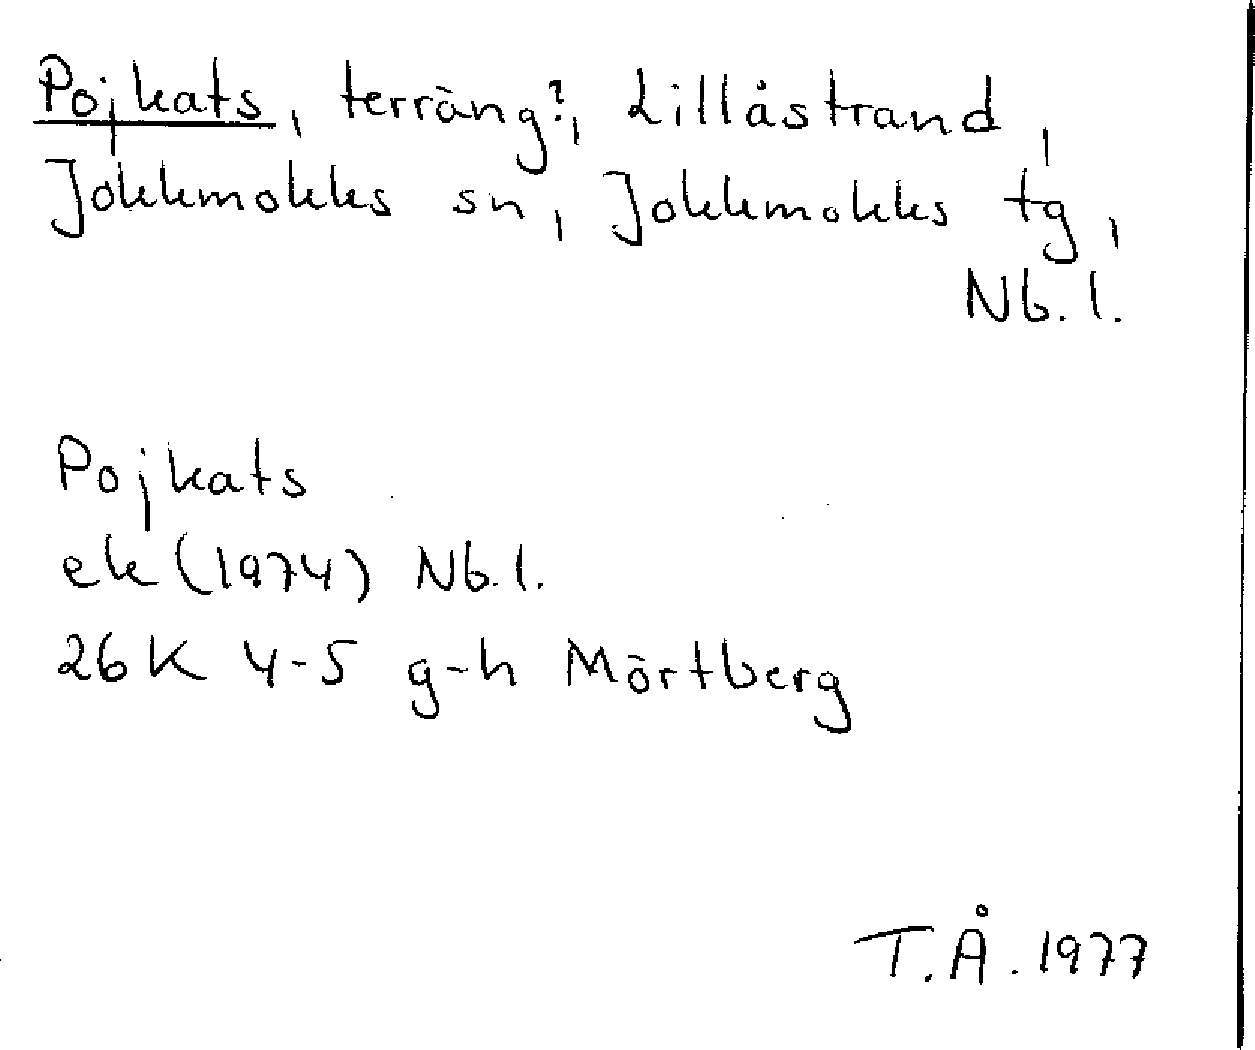 Pojkats, terräng?, Lillåstrand,
Jokkmokks sn, Jokkmokks tg,
Nb. l.
Pojkats
ek (1974) Nb. l.
26 K 4-5 g-h Mörtberg
T. Å. 1977